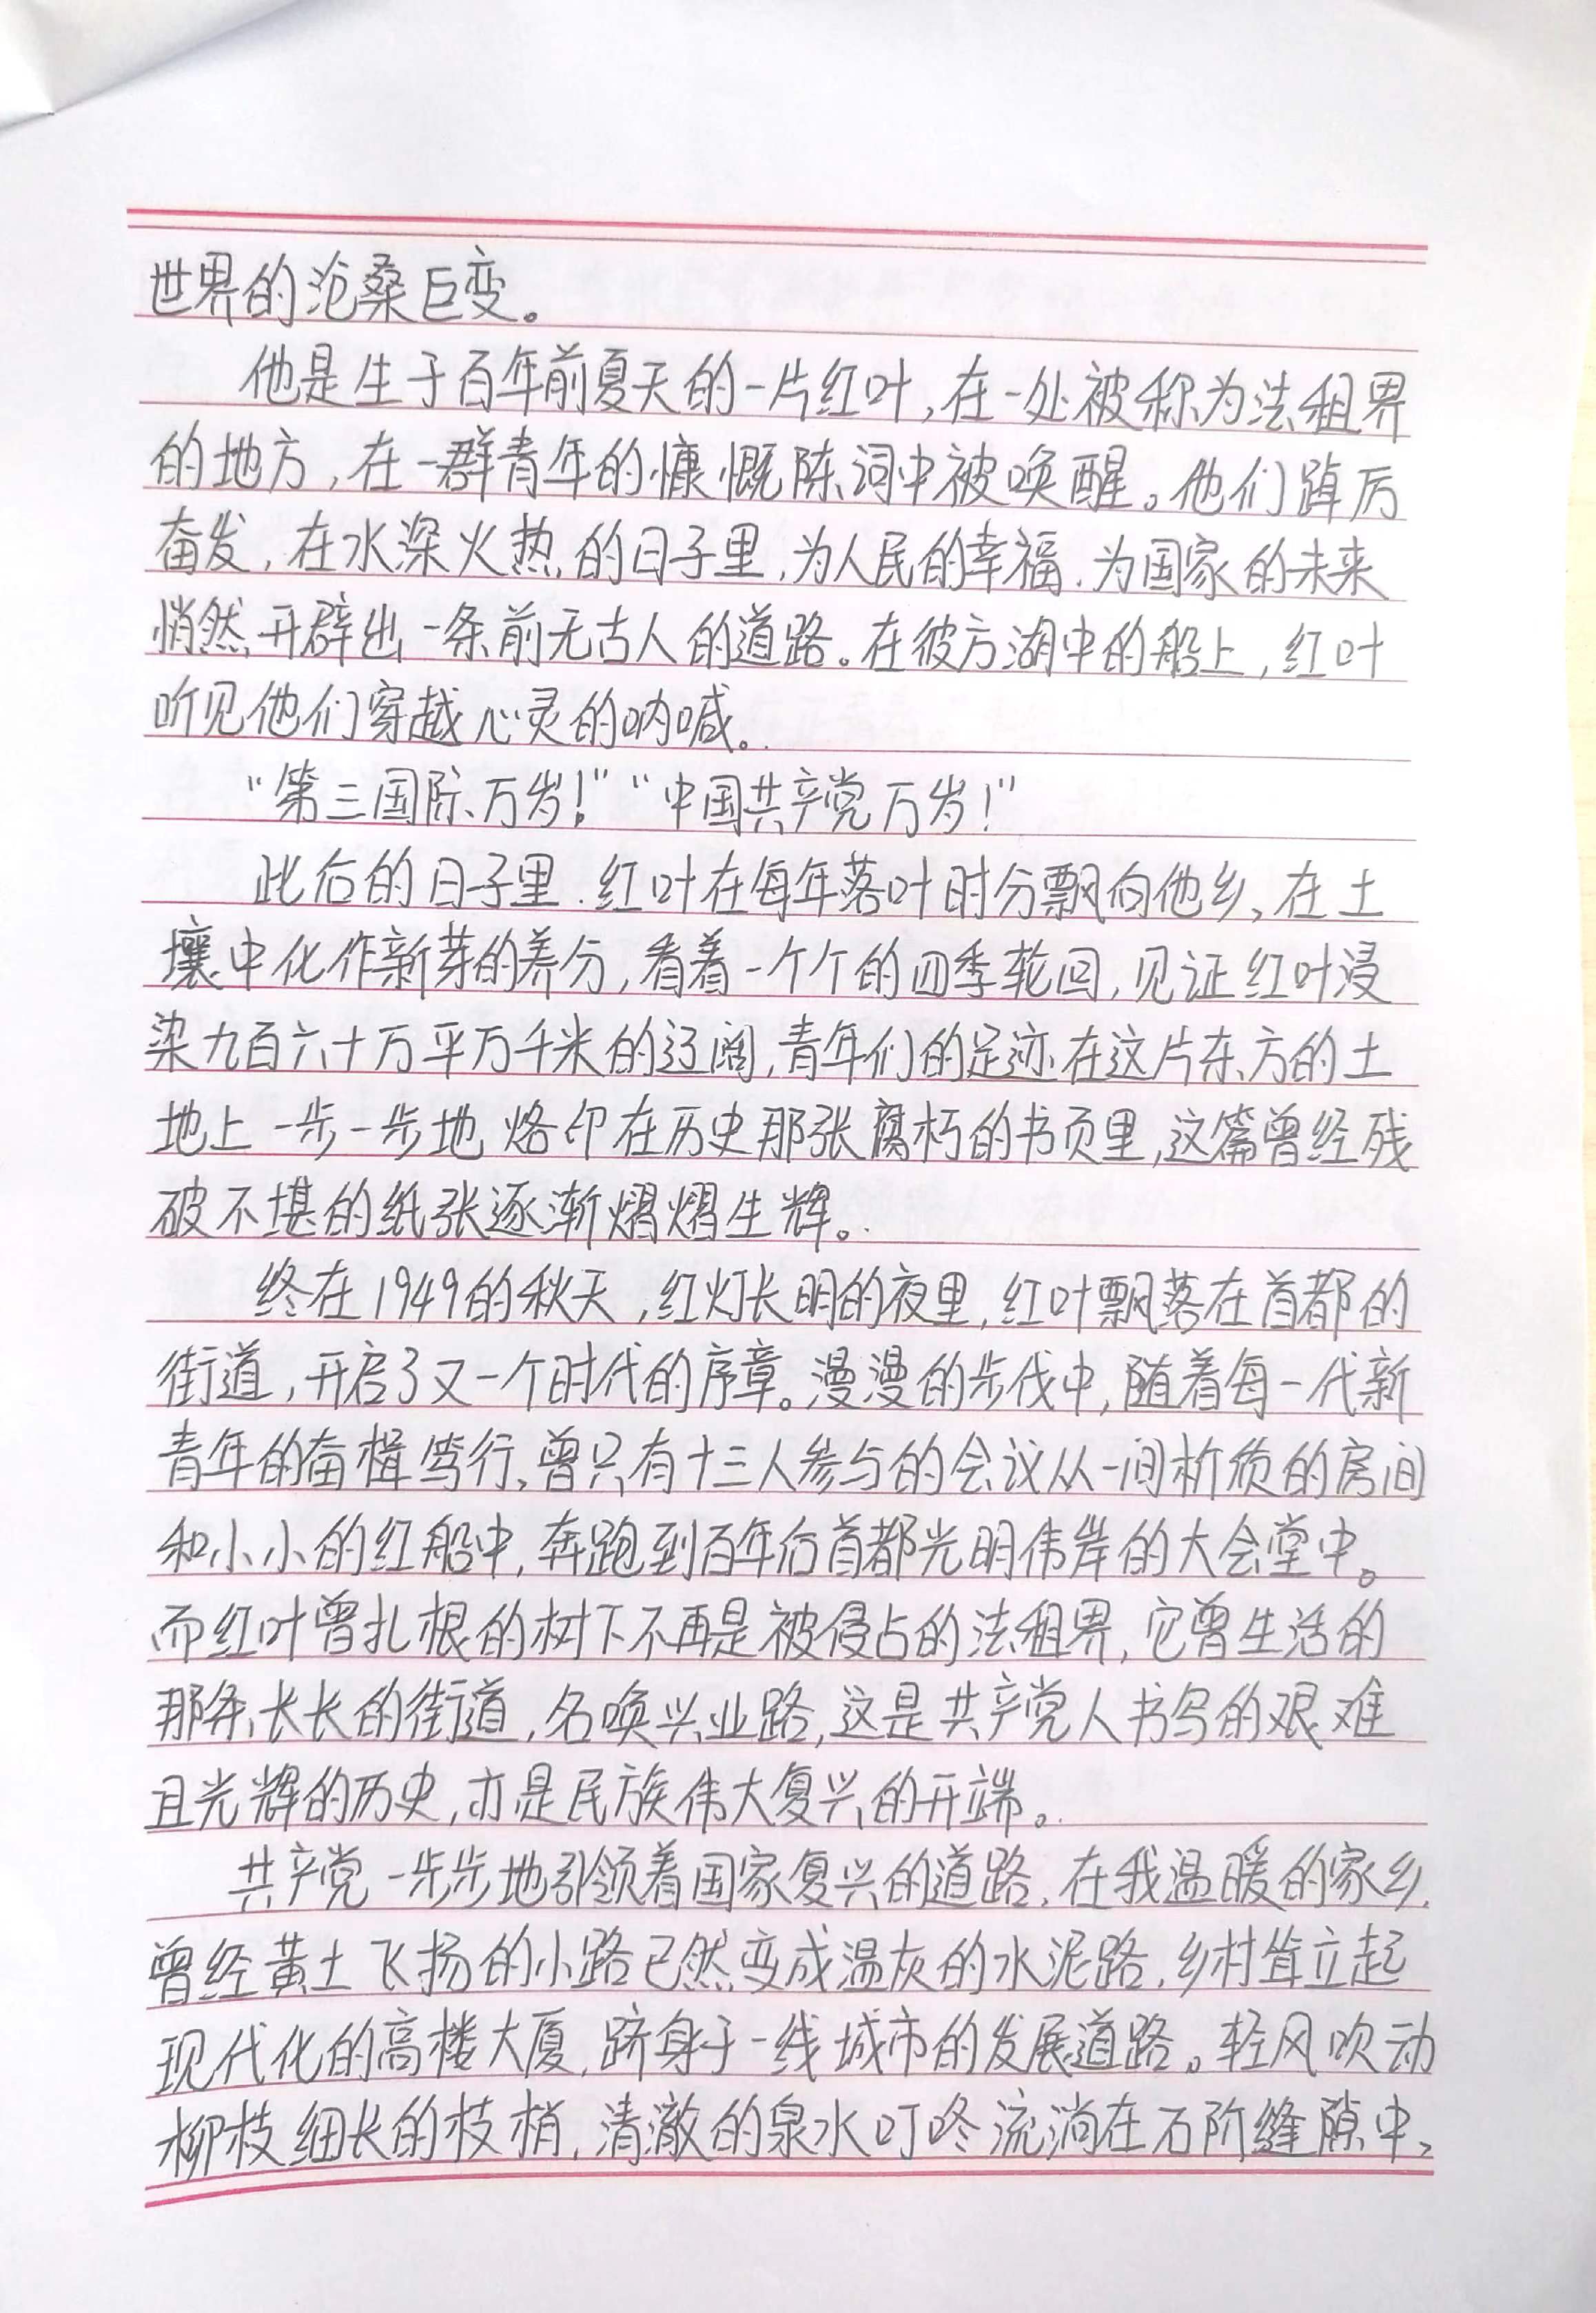 世界的沧桑巨变。
他是生于百年前夏天的一片红叶,在一处被称为法租界
的地方,在一群青年的慷慨陈词中被唤醒。他们踔厉
奋发,在水深火热的日子里,为人民的幸福、为国家的未来
悄然开辟出一条前无古人的道路。在彼方湖中的船上,红叶
听见他们穿越心灵的呐喊。
“第三国际万岁!”“中国共产党万岁!”
此后的日子里,红叶在每年落叶时分飘向他乡、在土
壤中化作新芽的养分,看着一个个的四季轮回,见证红叶浸
染九百六十万平万千米的辽阔,青年们的足迹在这片东方的土
地上一步一步地烙印在历史那张腐朽的书页里,这篇曾经残
破不堪的纸张逐渐熠熠生辉。
终在1949的秋天,红灯长明的夜里,红叶飘落在首都的
街道,开启了又一个时代的序章。漫漫的步伐中,随着每一代新
青年的奋楫笃行,曾只有十三人参与的会议从一间析质的房间
和小小的红船中,奔跑到百年后首都光明伟岸的大会堂中。
而红叶曾扎根的树下不再是被侵占的法租界,它曾生活的
那条长长的街道,名唤兴业路,这是共产党人书写的艰难
且光辉的历史,亦是民族伟大复兴的开端。
共产党一步步地引领着国家复兴的道路,在我温暖的家乡,
曾经黄土飞扬的小路已然变成温灰的水泥路,乡村耸立起
现代化的高楼大厦,跻身于一线城市的发展道路。轻风吹动
柳枝细长的枝梢,清澈的泉水叮咚流淌在石阶缝隙中,